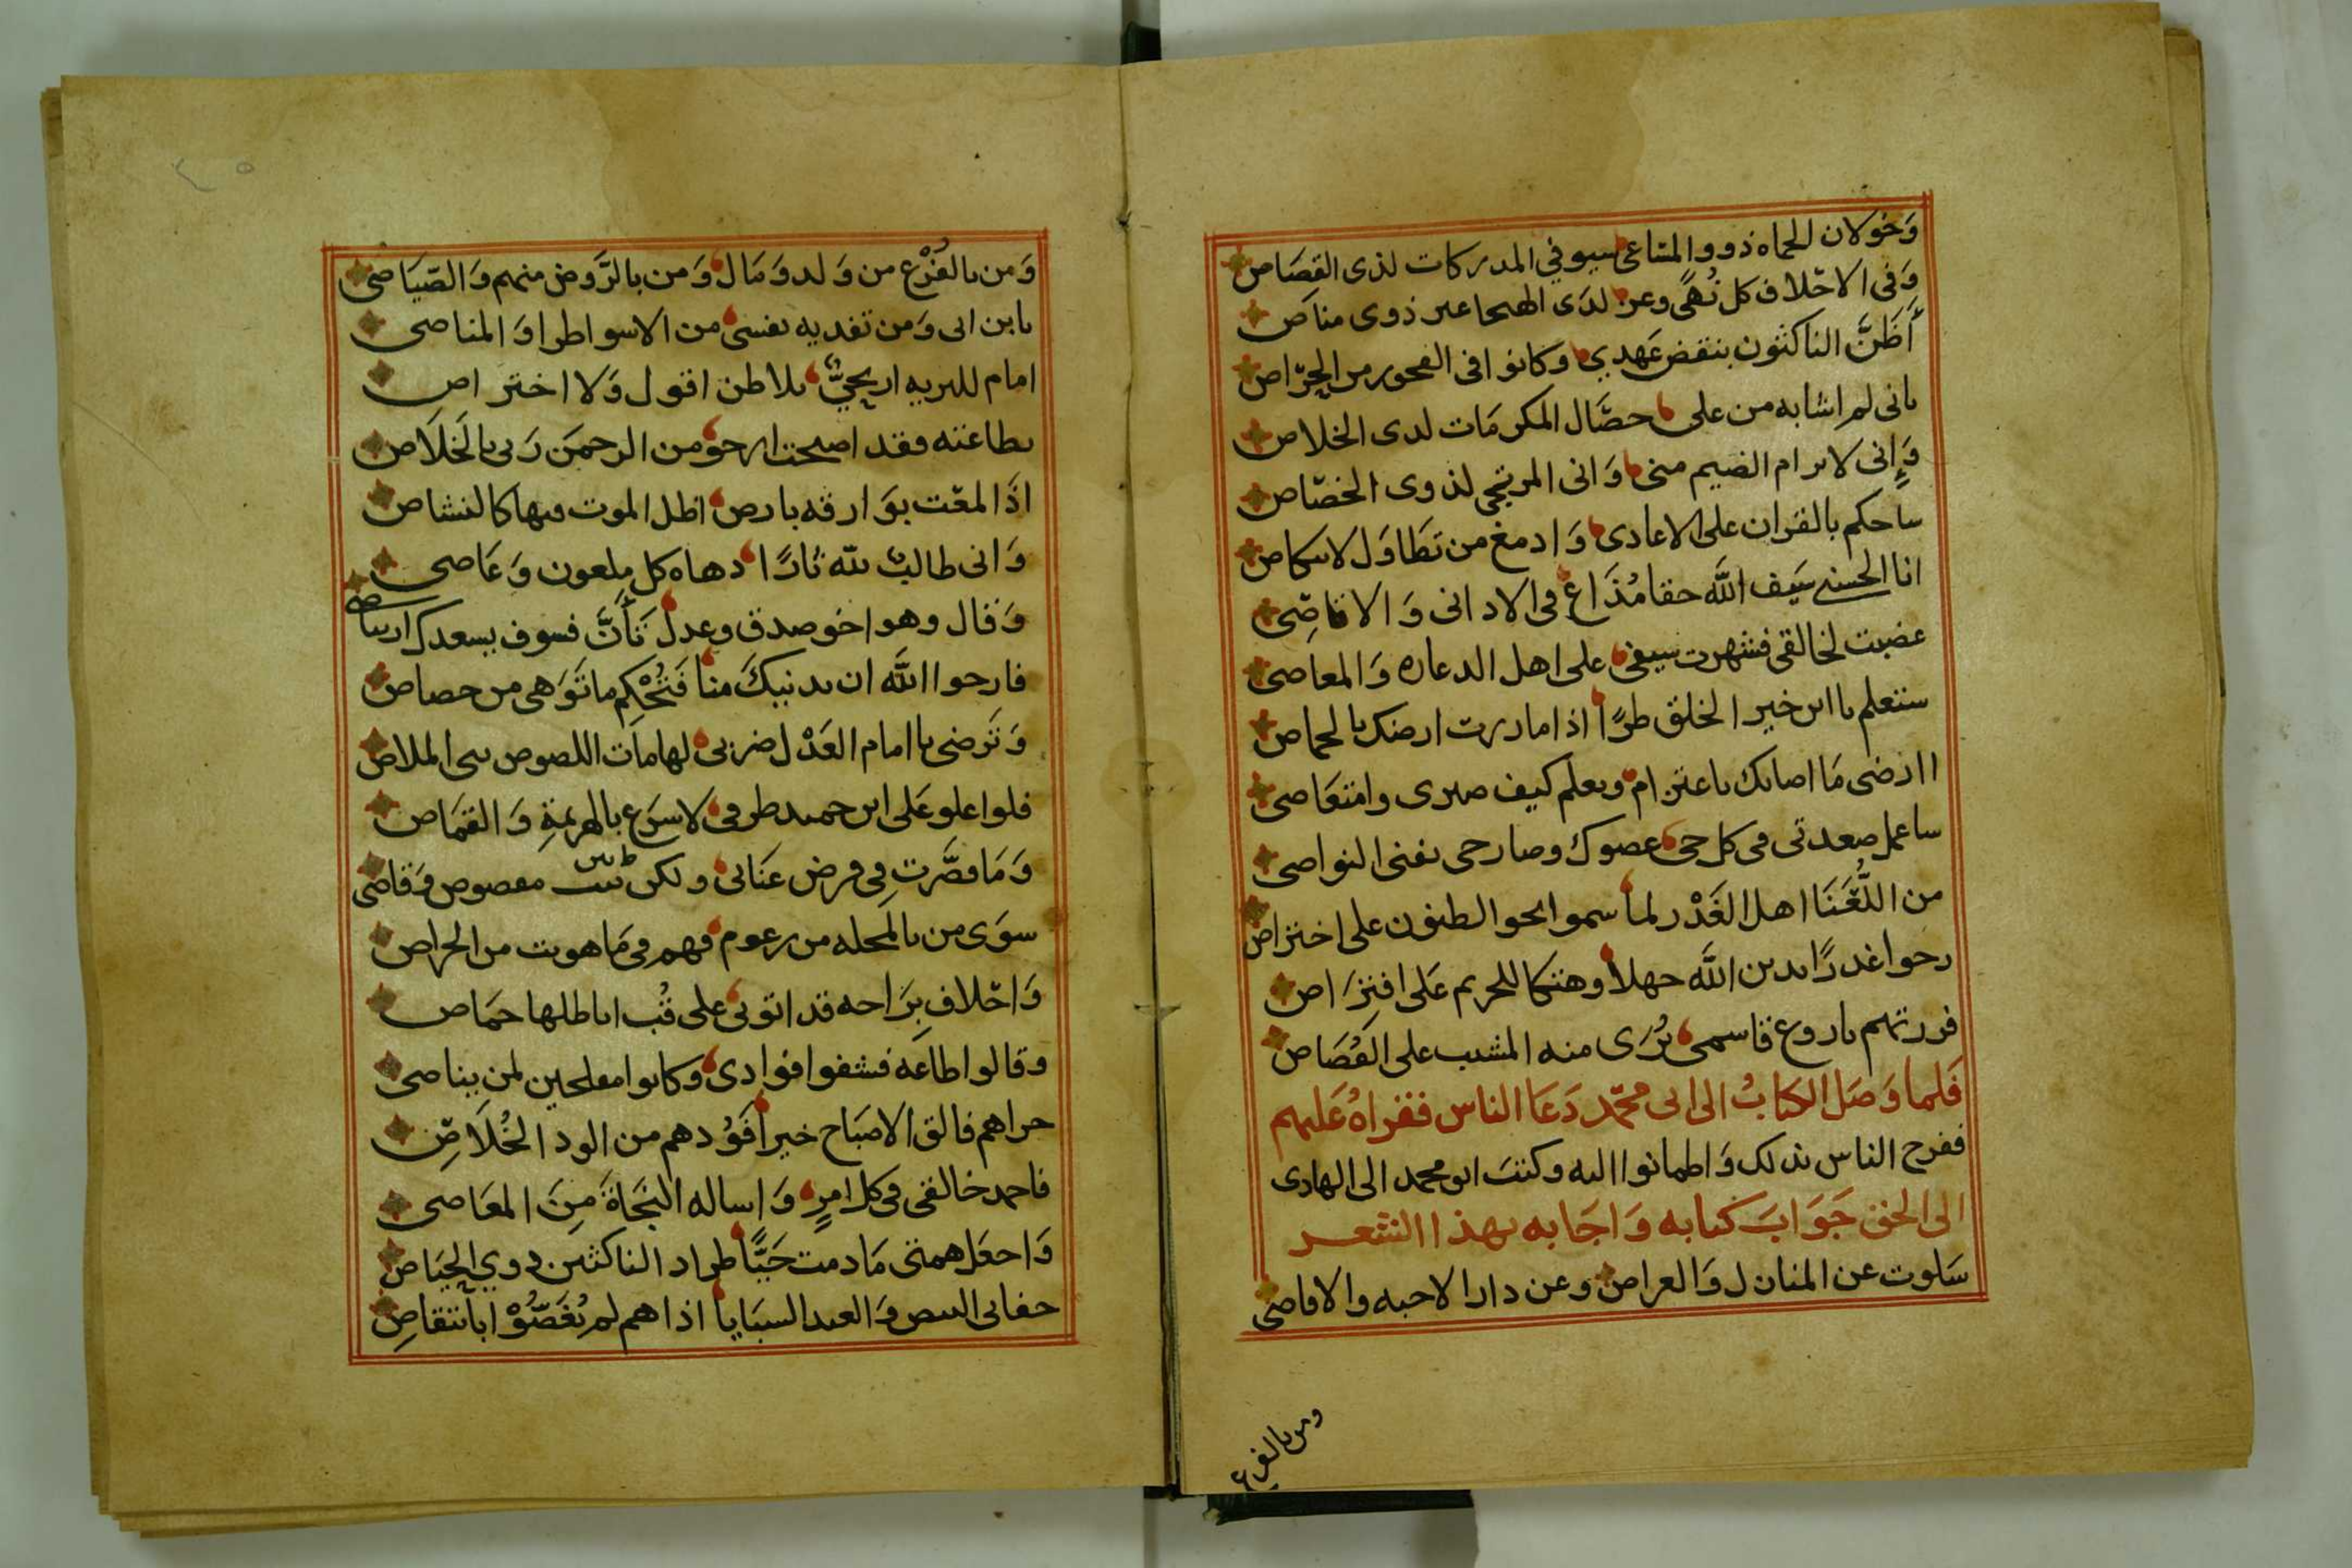 وَخولان الحماه ذووا المتاعى سيوفي المدركات لذى القصَاص
وَفى الاخلاف كل نُهًى وعز لدَى الهيجا عير ذوى مناص
أَظَنَّ الناكثون بنقض عَهدي وكانوا فى الفجور من الحِرّاص
بانى لم اشابه من على حصَّال المكرمَات لدى الخلاص
وَإِنى لا يرام الضيم منى وَانى المرتجى لذوى الخصّاص
ساحكم بالقران على الاعادى وَادمغ من تَطَاوَل لانتكاص
انا الحسنى سَيف اللَّه حقا مُذَاع فى الادانى وَالاقاصِى
غضبت لخالقى فشهرت سيفى على اهل الدعاره وَالمعاصى
ستعلم يا ابن خير الخلق طرًا اذا ما درت ارضك بالحماص
اارضى مَا اصابك باعتزام ويعلم كيف صبرى وامتعَاصى
ساعمل صعدتى فى كل حى عصوك وصارحى نفنى النواصى
من اهل الغَدْر لما سموا نحو الظنون على اختراص
رجوا غدرًا بدين اللَّه جهلا وهتكا للحريم عَلى افتِرَاص
فزرتهم باروع قاسمى يُرَى منه المشيب على القُصَاص
فَلما وَصَل الكتابُ الى ابى محمّد دَعَا الناس فقراهُ عَليهم
ففرح الناس بذلك وَاطمانوا اليه وكتبَ ابو محمد الى الهادى
الى الحق جَوَابَ كتابه وَاجَابه بهذا الشعر
سَلوت عن المنازل وَالعراص وعن دار الاحبه والاقاصى
ومن بالفرع
وَمن بالفُرْع من وَلد وَمَال وَمن بالرَّوض منهم وَالصّيَاصى
بابن ابى وَمن تفديه نفسى من الاسوا طرا وَالمناصى
امام للبريه اريحيٌّ بلا ظن اقول وَلا اختراص
بطاعته فقد اصبحت ارجو من الرحمَن رَبى بالخَلَاص
اذَا المعّت بوَارقه بارض اظل الموت فيها كالنشاص
وَانى طالبٌ لله ثارًا دهاه كل ملعون وَعَاصى
وَقال وهو اخو صدق وعدل تَأَنَّ فسوف يسعدك ارتياصى
فارجوا اللَّه ان يدنيكَ منا فَتُحْكِم ما تَوَهى من حصاص
وَتَرضى يا امام العَدْل ضربى لهامات اللصوص بنى الملاص
فلوا علو عَلى ابن حميد طرفى لاسرَع بالهزيمةِ وَالقمَاص
وَمَا قصَّرت فى فرض عَنَانى ولكن طيرى مقصوص وَقاصى
سوَى من بالمَحله من رعوم فهم فى مَا هويت من الحراص
وَاخلاف بِرَاحه قد اتونى على قُبِ اباطلها خمَاص
وقالوا طاعَه فشفوا فوادى وكانوا مفلحين لمن يناصى
جزاهم فالق الاصبَاح خيرا فَوُدهم من الود الخُلَاصِّ
فاحمد خالقى فى كل امرٍ وَاساله النجَاةَ مِنَ المعَاصى
وَاجعَل همتى مَا دمت حَيًّا طراد الناكثين ذوي الحيَاص
جفانى البيض وَالغيد السبَايا اذا هم لم يُغَصُّوْا بانتقاصِ